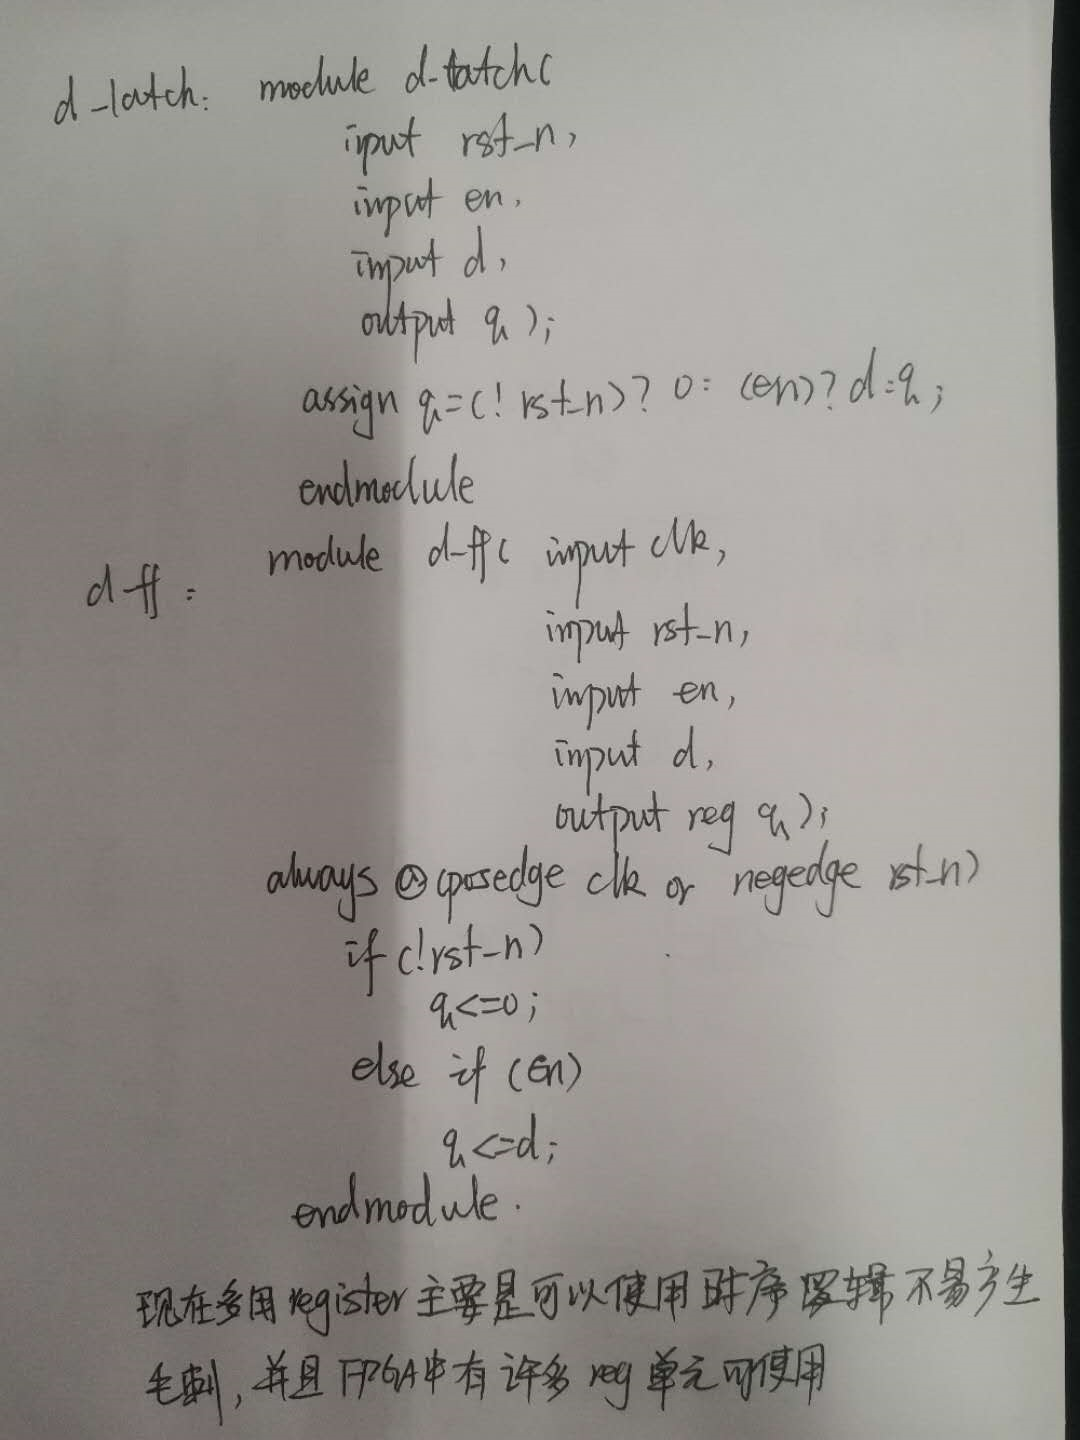 d-latch: module d-latch(
input rst_n,
input en,
input d,
output q);
assign q=(!rst_n)?0:(en)?d:q;
endmodule
d-ff: module d-ff( input clk,
input rst_n,
input en,
input d,
output reg q);
always @(posedge clk or negedge rst_n)
if (!rst_n)
q<=0;
else if (en)
q<=d;
endmodule.
现在多用register主要是可以使用时序逻辑不易产生
毛刺,并且FPGA中有许多reg单元可使用